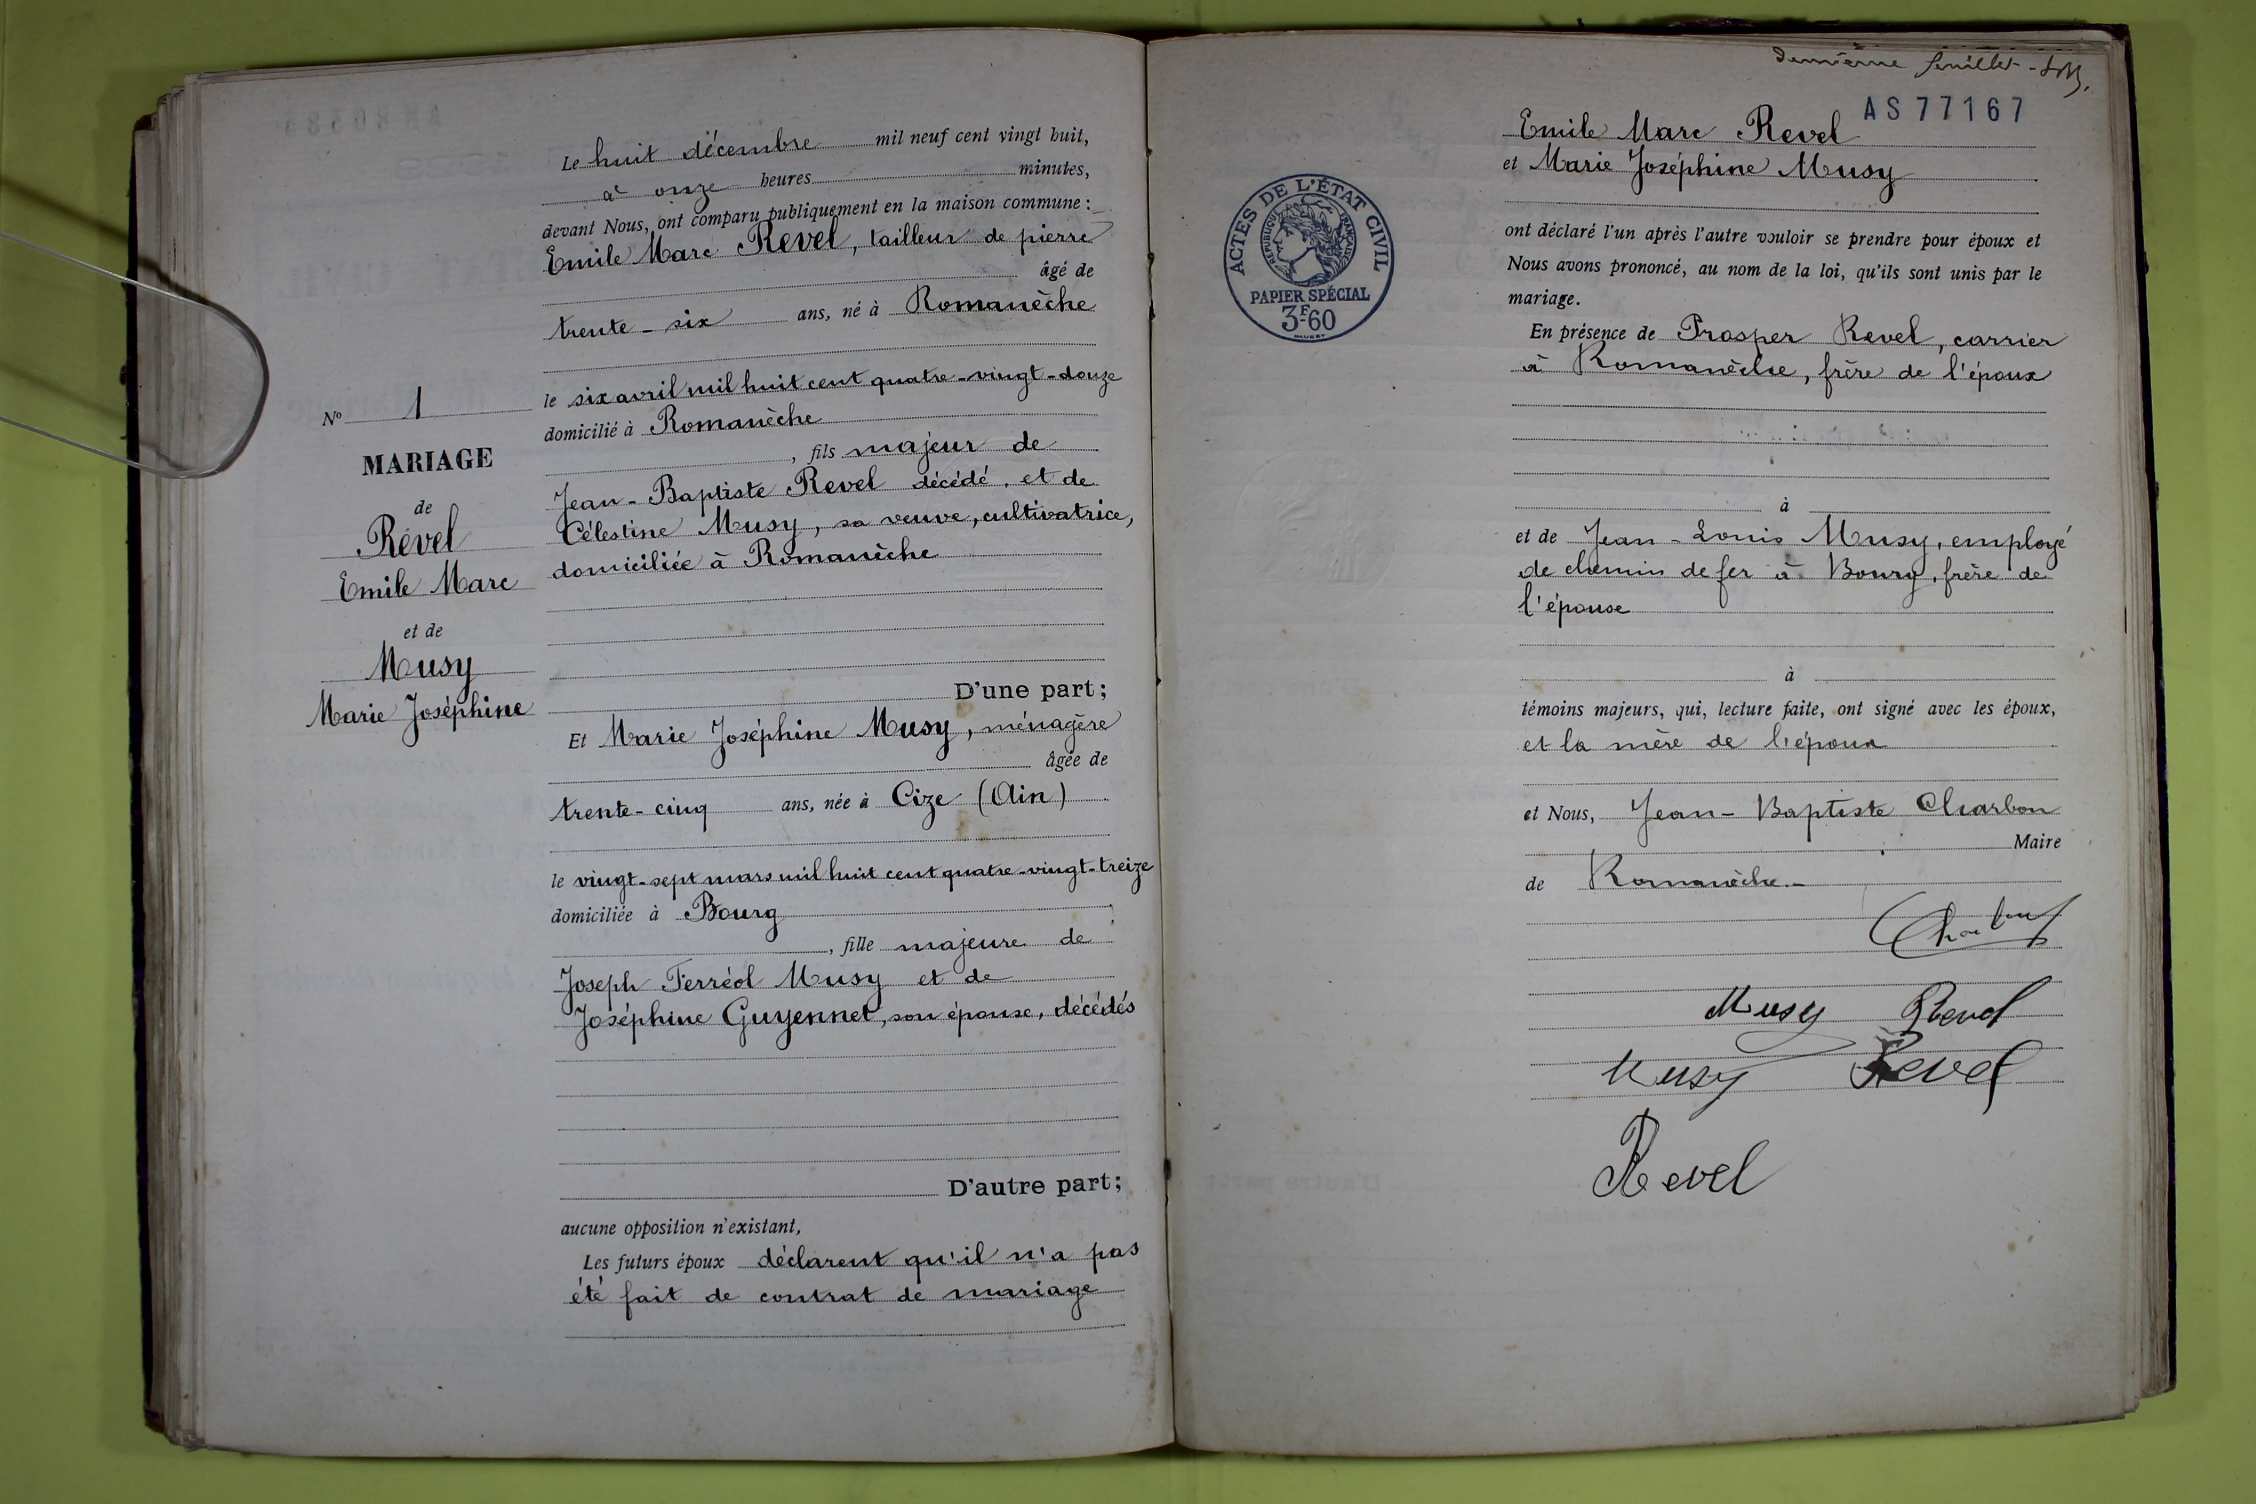 Le huit décembre mil neuf cent vingt huit,
à onze heures minutes,
devant Nous, ont comparu publiquement en la maison commune :
Emile Marc Revel, tailleur de pierre
âgé de
trente-six ans, né à Romanèche
le six avril mil huit cent quatre-vingt-douze
domicilié à Romanèche
, fils majeur de
Jean-Baptiste Revel décédé, et de
Célestine Musy, sa veuve, cultivatrice,
domiciliée à Romanèche
D'une part;
Et Marie Joséphine Musy, ménagère
âgée de
trente-cinq ans, née à Cize (Ain)
le vingt-sept mars mil huit cent quatre-vingt-treize
domiciliée à Bourg
, fille majeure de
Joseph Ferréol Musy et de
Joséphine Guyennet, son épouse, décédés
D'autre part;
aucune opposition n'existant,
Les futurs époux déclarent qu'il n'a pas
été fait de contrat de mariage
N° 1
MARIAGE
de
Revel
Emile Marc
et de
Musy
Marie Joséphine
feuillet
AS 77167
ACTES DE L'ÉTAT CIVIL
RÉPUBLIQUE FRANÇAISE
PAPIER SPÉCIAL
3F60
Emile Marc Revel
et Marie Joséphine Musy
ont déclaré l'un après l'autre vouloir se prendre pour époux et
Nous avons prononcé, au nom de la loi, qu'ils sont unis par le
mariage.
En présence de Prosper Revel, carrier
à Romanèche, frère de l'époux
à
et de Jean-Louis Musy, employé
de chemin de fer à Bourg, frère de
l'épouse
à
témoins majeurs, qui, lecture faite, ont signé avec les époux,
et la mère de l'époux
et Nous, Jean-Baptiste Charbon
Maire
de Romanèche.-
Charbon
Musy Revel
Musy Revel
Revel